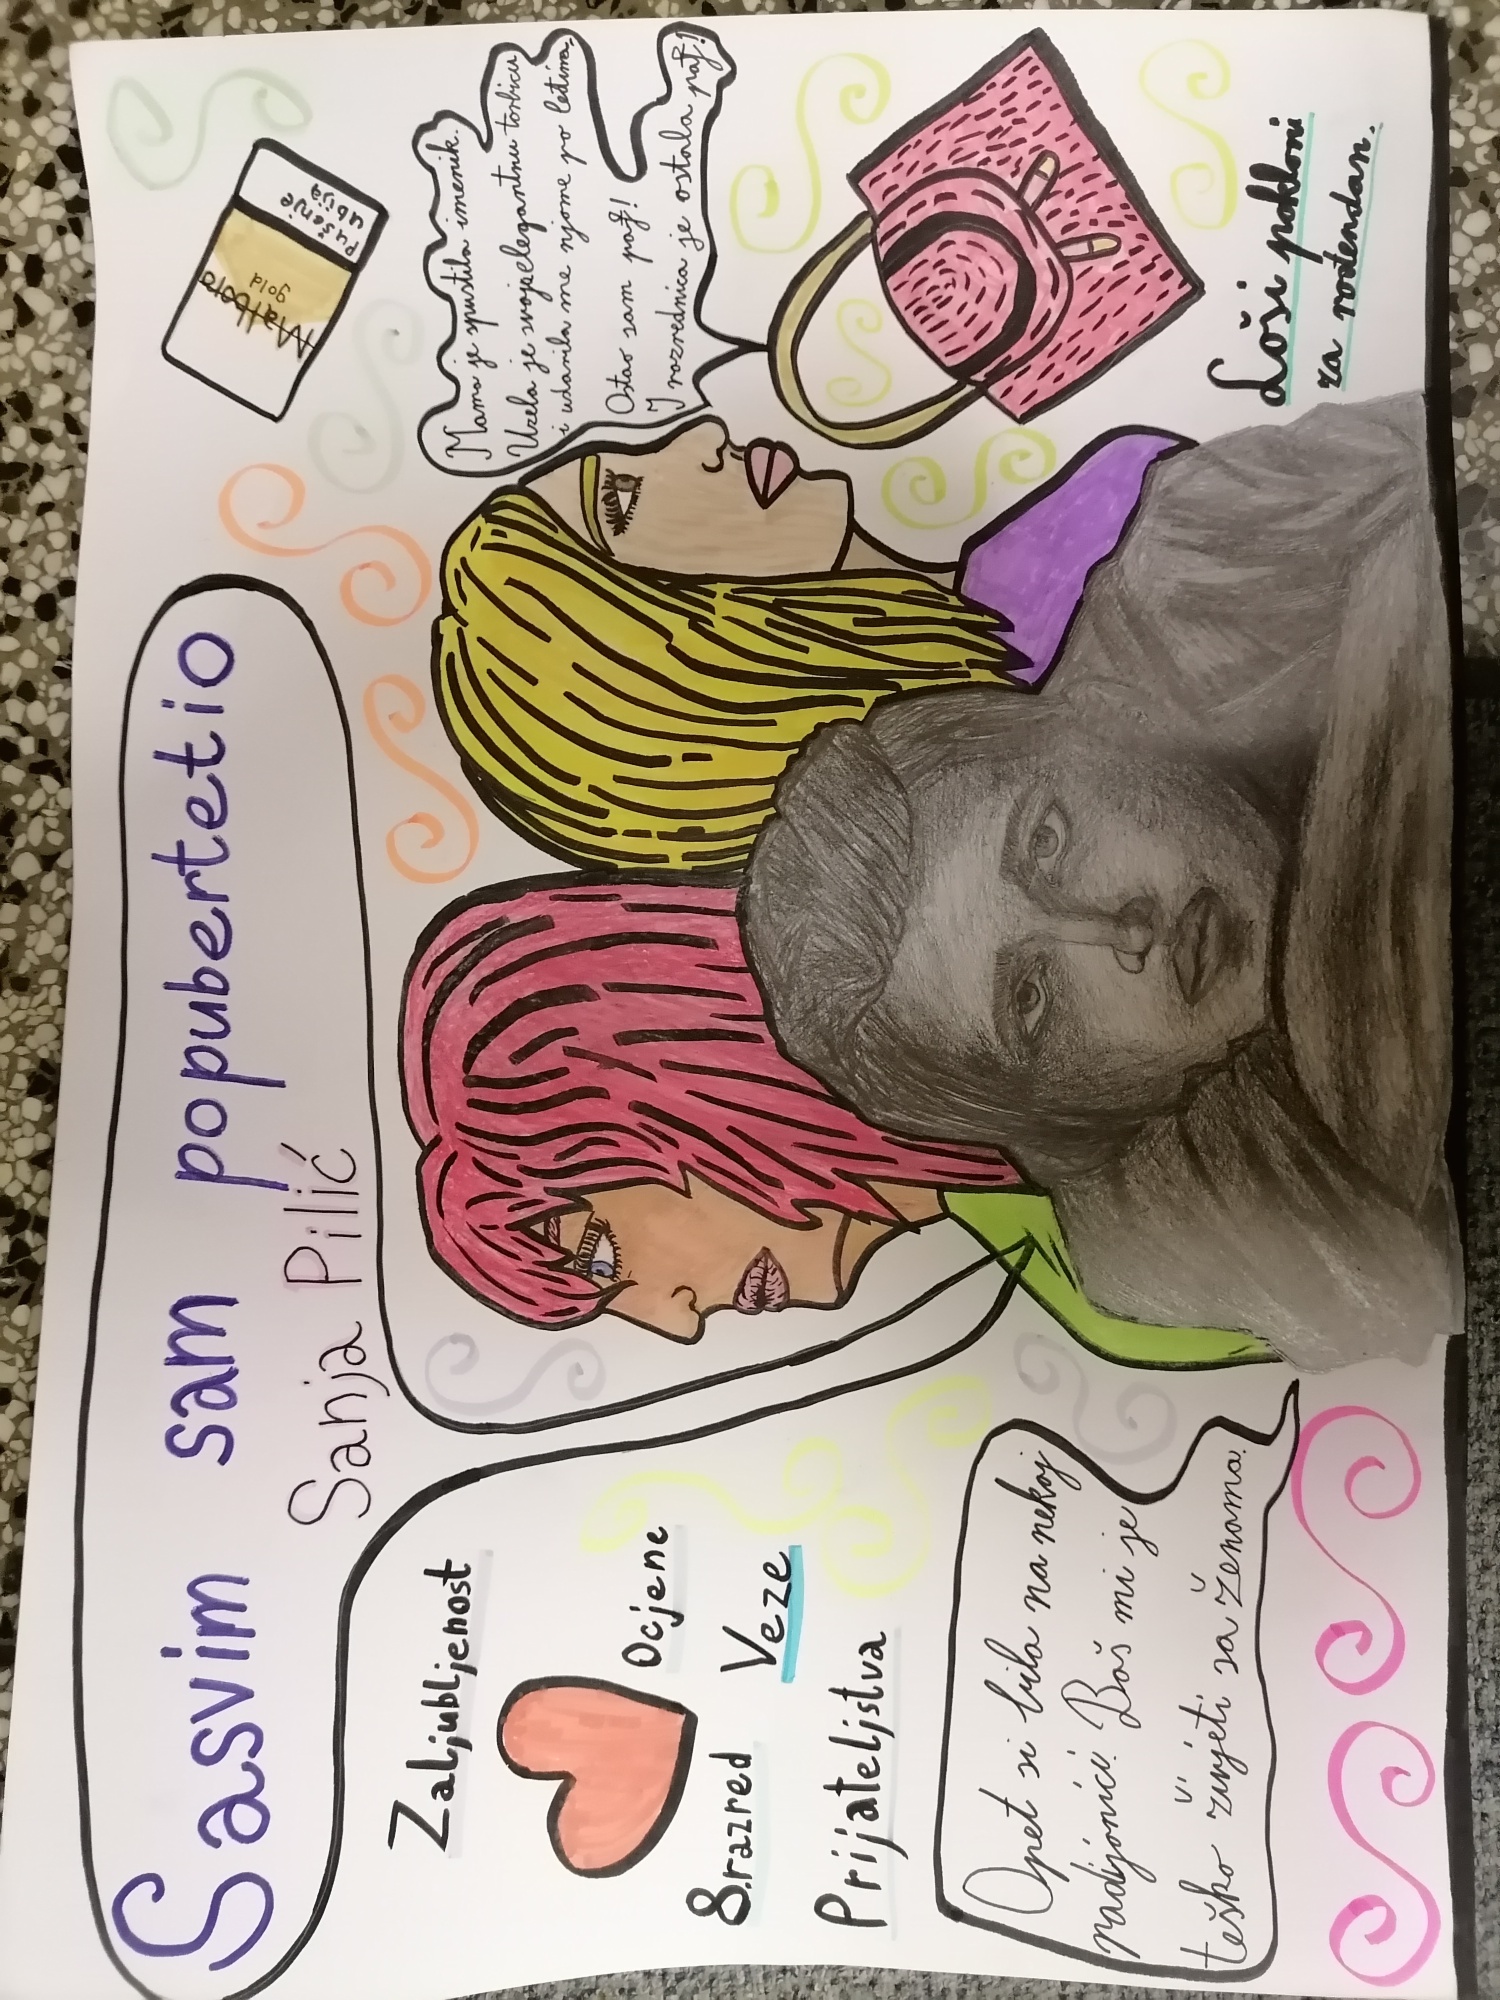 Sasvim sam popubertetio
Sanja Pilić
Zaljubljenost
Ocjene
8.razred
Veze
Prijateljstva
Opet si bila na nekoj
radijonici! Baš mi je
teško živjeti sa ženama!
Marlboro
gold
Pušenje
ubija
Mama je spustila imenik.
Uzela je svoju elegantnu torbicu
i udarila me njome po leđima.
Ostao sam paf!
I razrednica je ostala paf!
Loši pokloni
za rođendan.